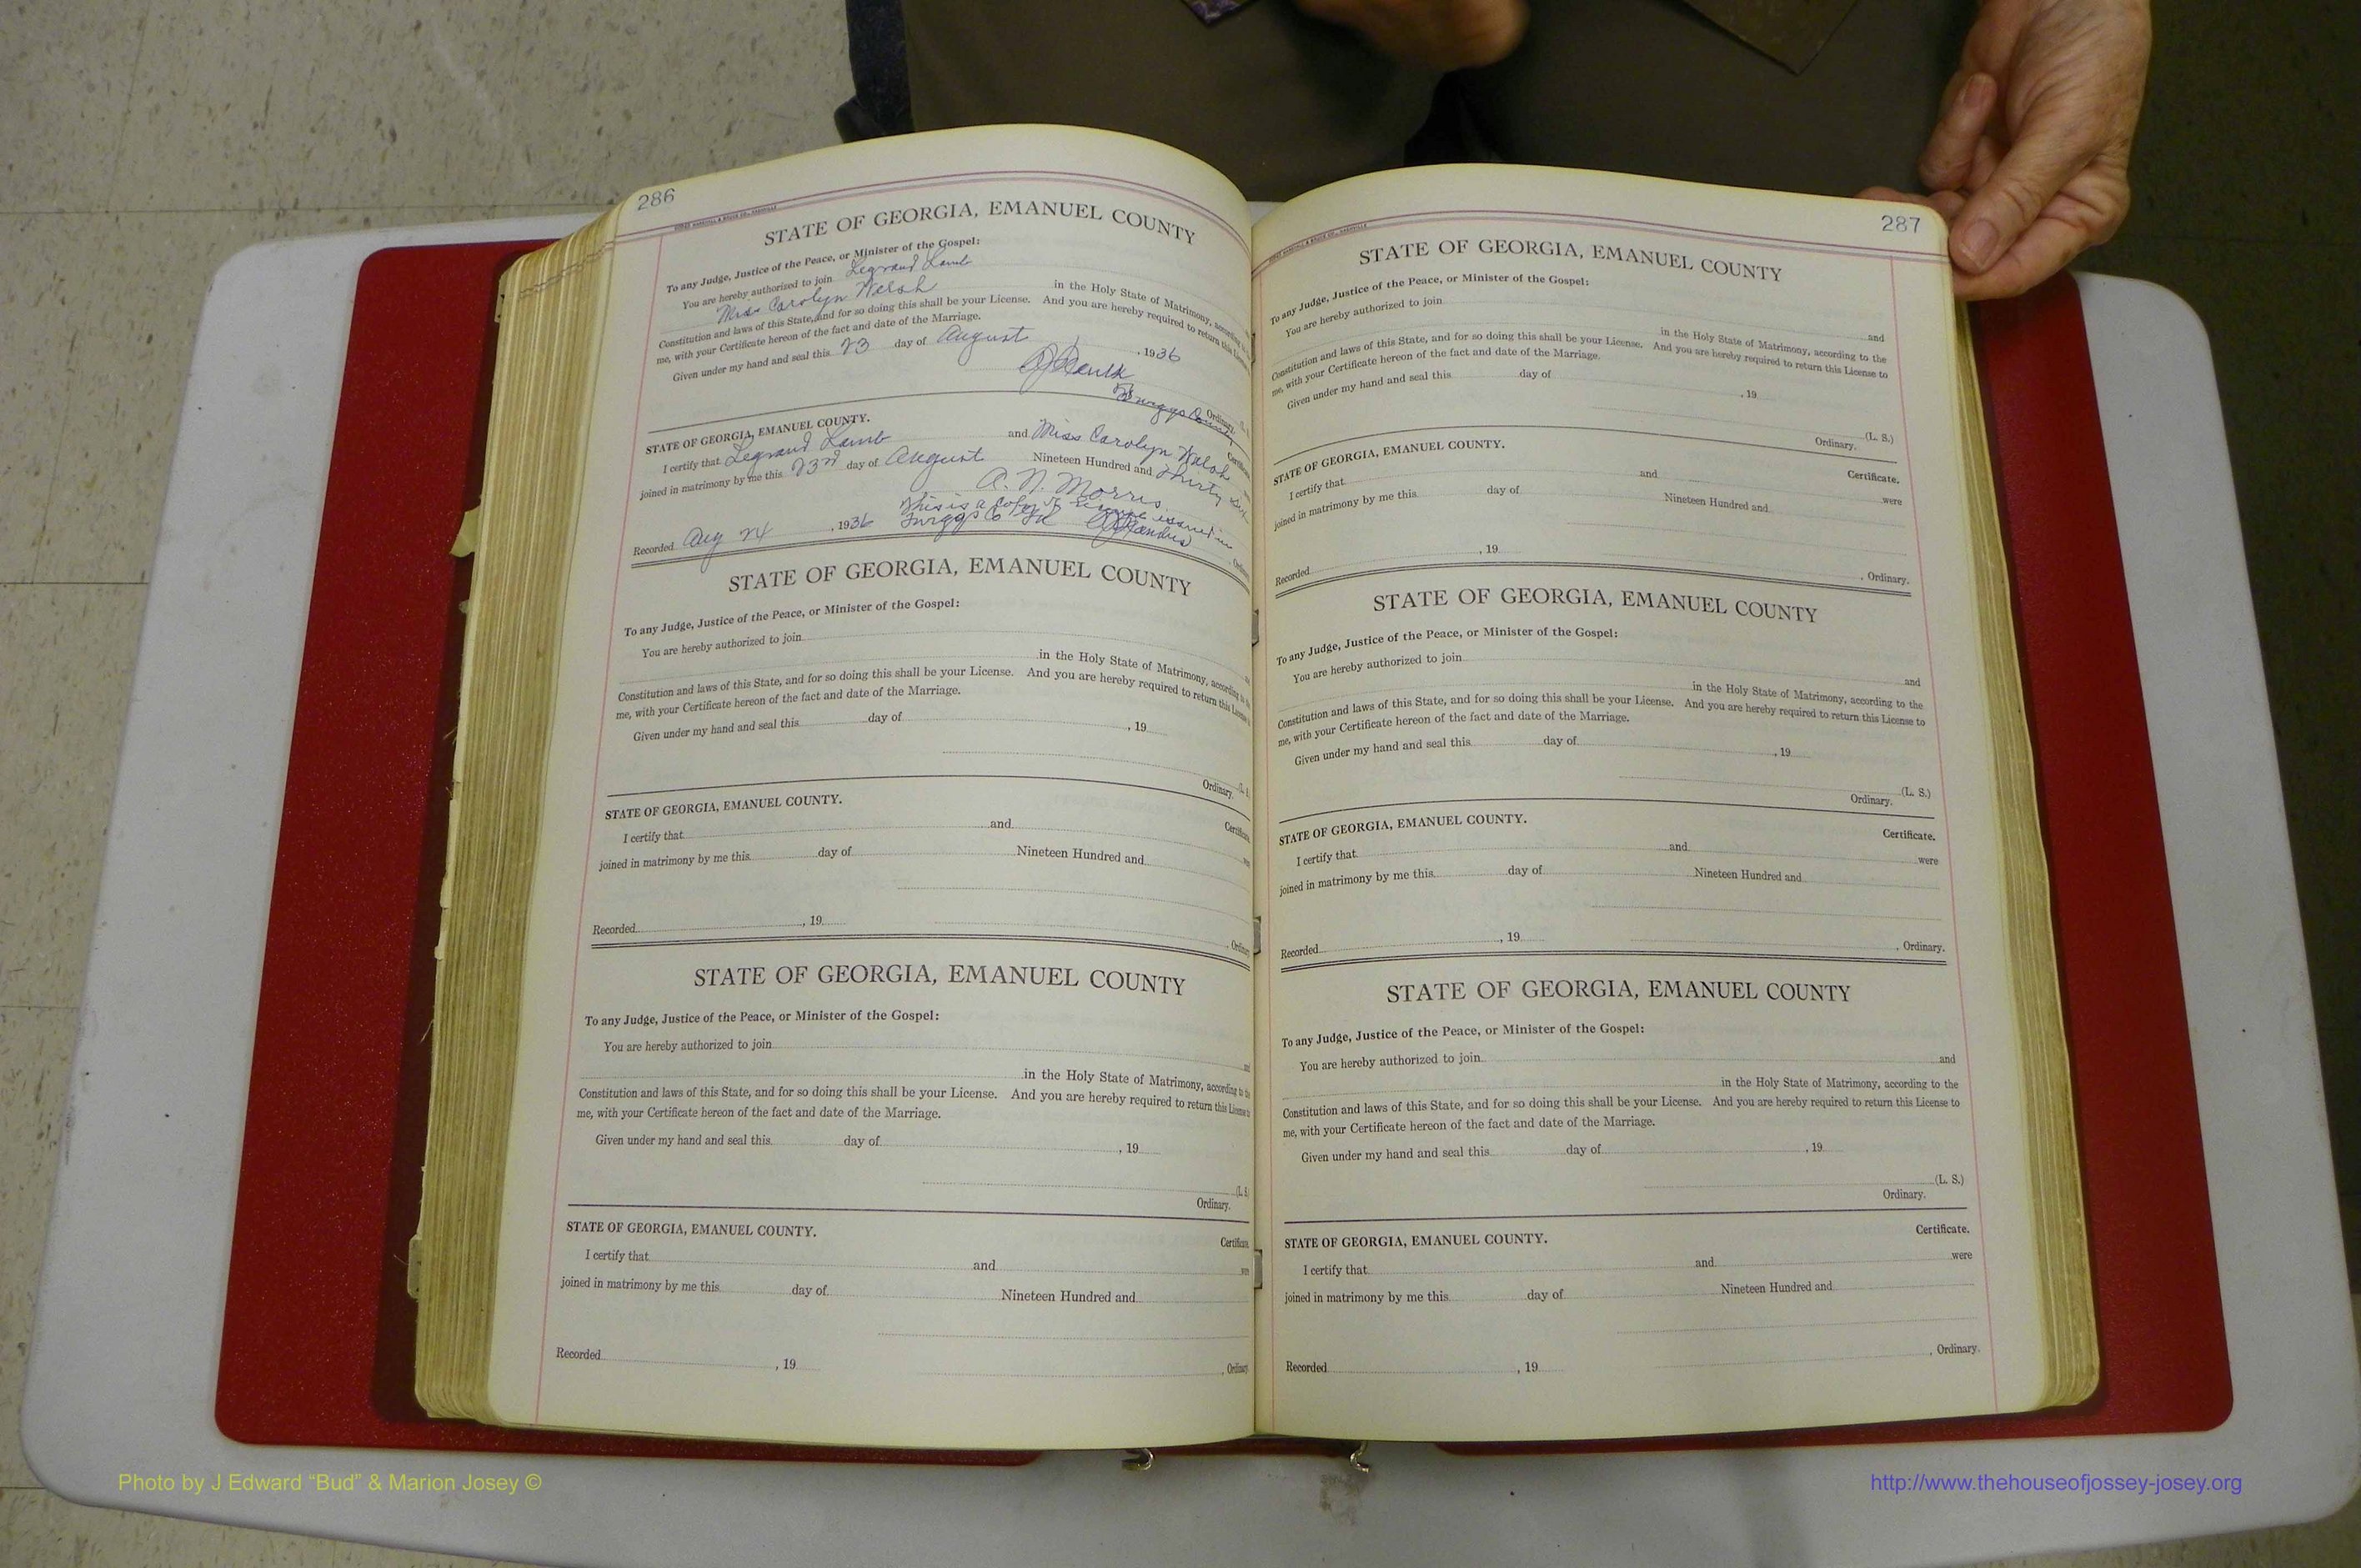 286
STATE OF GEORGIA, EMANUEL COUNTY
To any Judge, Justice of the Peace, or Minister of the Gospel:
You are hereby authorized to join Legrand Lamb
Miss Carolyn Walsh in the Holy State of Matrimony, according to
Constitution and laws of this State, and for so doing this shall be your License. And you are hereby required to return this
me, with your Certificate hereon of the fact and date of the Marriage.
Given under my hand and seal this 23 day of August, 1936
Twiggs County
Ordinary.
STATE OF GEORGIA, EMANUEL COUNTY.
Certificate
I certify that Legrand Lamb and Miss Carolyn Walsh
joined in matrimony by me this 23rd day of August Nineteen Hundred and Thirty Six
A. N. Morris
This is a copy of license issued in
Recorded Aug 24, 1936 Twiggs Co Ga
STATE OF GEORGIA, EMANUEL COUNTY
To any Judge, Justice of the Peace, or Minister of the Gospel:
You are hereby authorized to join
in the Holy State of Matrimony, according to
Constitution and laws of this State, and for so doing this shall be your License. And you are hereby required to return this License
me, with your Certificate hereon of the fact and date of the Marriage.
Given under my hand and seal this day of , 19
Ordinary.
STATE OF GEORGIA, EMANUEL COUNTY.
Certificate
I certify that and
joined in matrimony by me this day of Nineteen Hundred and
Recorded , 19 , Ordinary
STATE OF GEORGIA, EMANUEL COUNTY
To any Judge, Justice of the Peace, or Minister of the Gospel:
You are hereby authorized to join
in the Holy State of Matrimony, according to
Constitution and laws of this State, and for so doing this shall be your License. And you are hereby required to return this License
me, with your Certificate hereon of the fact and date of the Marriage.
Given under my hand and seal this day of , 19
Ordinary.
STATE OF GEORGIA, EMANUEL COUNTY.
Certificate
I certify that and
joined in matrimony by me this day of Nineteen Hundred and
Recorded , 19 , Ordinary
287
STATE OF GEORGIA, EMANUEL COUNTY
To any Judge, Justice of the Peace, or Minister of the Gospel:
You are hereby authorized to join and
in the Holy State of Matrimony, according to the
Constitution and laws of this State, and for so doing this shall be your License. And you are hereby required to return this License to
me, with your Certificate hereon of the fact and date of the Marriage.
Given under my hand and seal this day of , 19
(L. S.)
Ordinary.
STATE OF GEORGIA, EMANUEL COUNTY.
Certificate.
I certify that and were
joined in matrimony by me this day of Nineteen Hundred and
Recorded , 19 , Ordinary.
STATE OF GEORGIA, EMANUEL COUNTY
To any Judge, Justice of the Peace, or Minister of the Gospel:
You are hereby authorized to join and
in the Holy State of Matrimony, according to the
Constitution and laws of this State, and for so doing this shall be your License. And you are hereby required to return this License to
me, with your Certificate hereon of the fact and date of the Marriage.
Given under my hand and seal this day of , 19
(L. S.)
Ordinary.
STATE OF GEORGIA, EMANUEL COUNTY.
Certificate.
I certify that and were
joined in matrimony by me this day of Nineteen Hundred and
Recorded , 19 , Ordinary.
STATE OF GEORGIA, EMANUEL COUNTY
To any Judge, Justice of the Peace, or Minister of the Gospel:
You are hereby authorized to join and
in the Holy State of Matrimony, according to the
Constitution and laws of this State, and for so doing this shall be your License. And you are hereby required to return this License to
me, with your Certificate hereon of the fact and date of the Marriage.
Given under my hand and seal this day of , 19
(L. S.)
Ordinary.
STATE OF GEORGIA, EMANUEL COUNTY.
Certificate.
I certify that and were
joined in matrimony by me this day of Nineteen Hundred and
Recorded , 19 , Ordinary.
Photo by J Edward “Bud” & Marion Josey ©
http://www.thehouseofjossey-josey.org